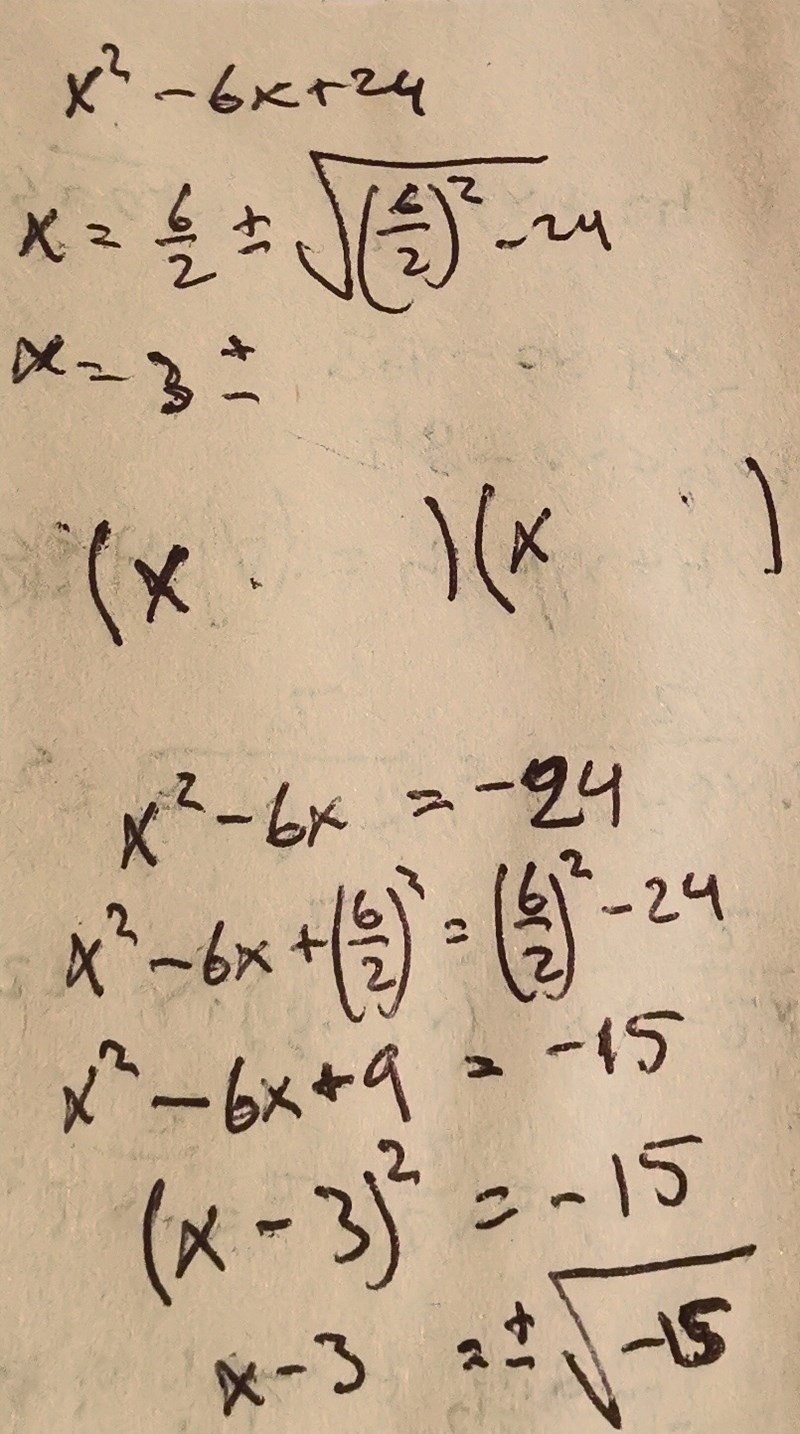 x² - 6x + 24
x = 6/2 ± √(6/2)² - 24
x = 3 ±
(x )(x )
x² - 6x = -24
x² - 6x + (6/2)² = (6/2)² - 24
x² - 6x + 9 = -15
(x - 3)² = -15
x - 3 = ± √-15